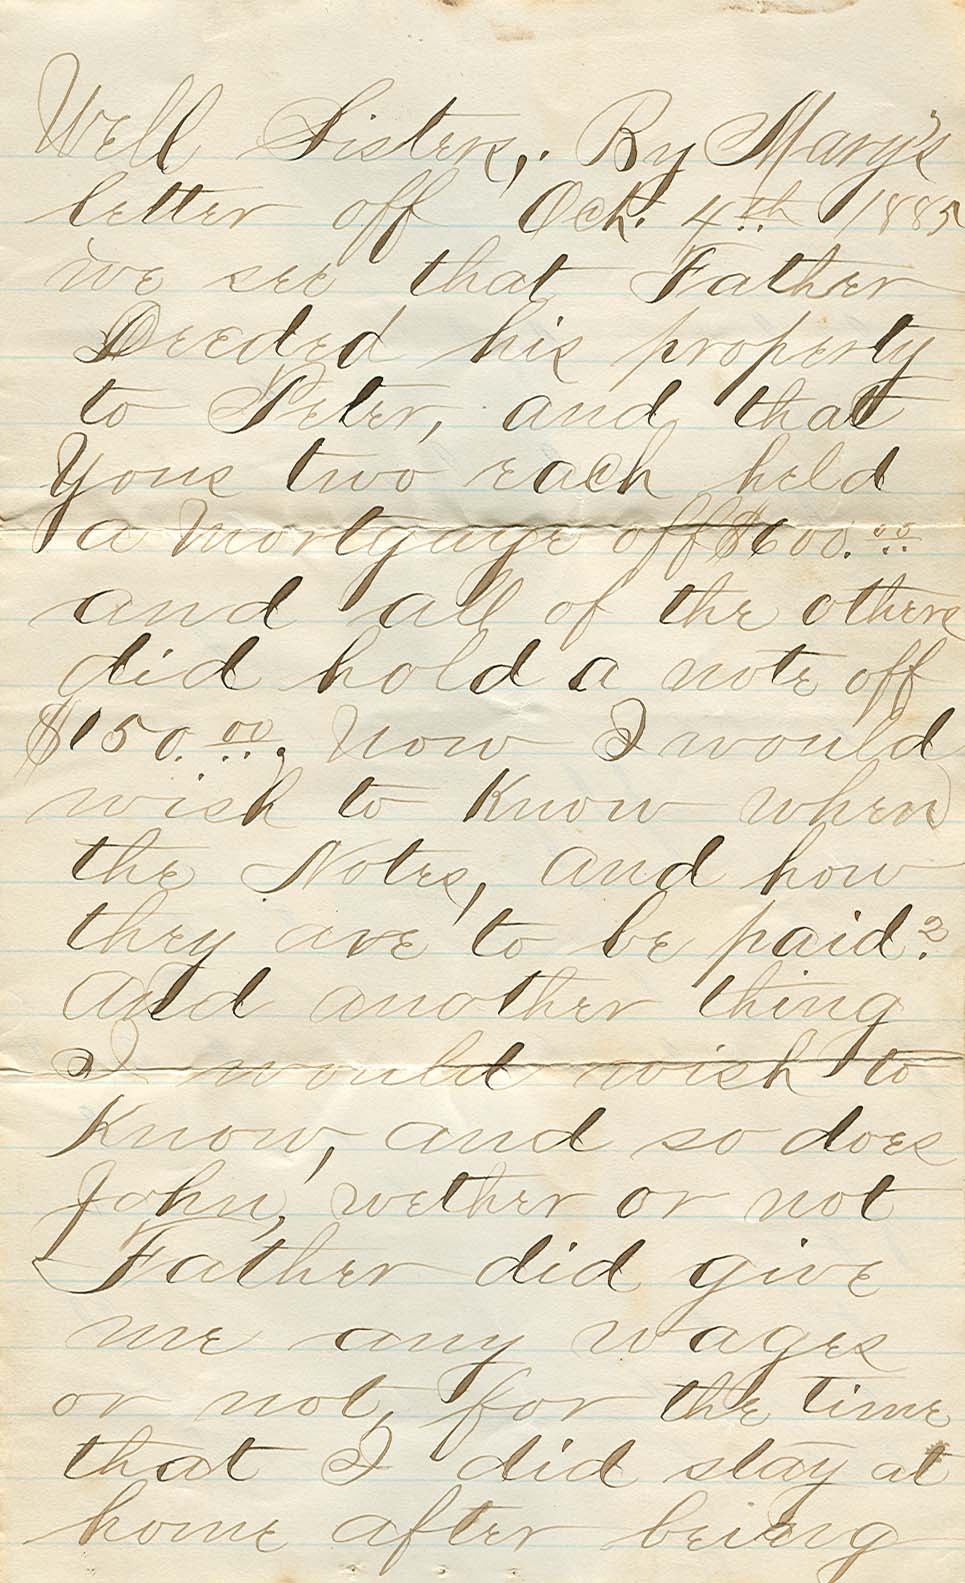 Well Sisters,. By Mary's
letter off Oct. 4th 1885
we see that Father
Deeded his property
to Peter, and that
Yous two each held
a Mortgage off $600.00
and all of the others
did hold a note off
$150.00. Now I would
wish to Know when
the Notes, and how
they are to be paid?
And another thing
I would wish to
Know, and so does
John, wether or not
Father did give
me any wages
or not, for the time
that I did stay at
home after being